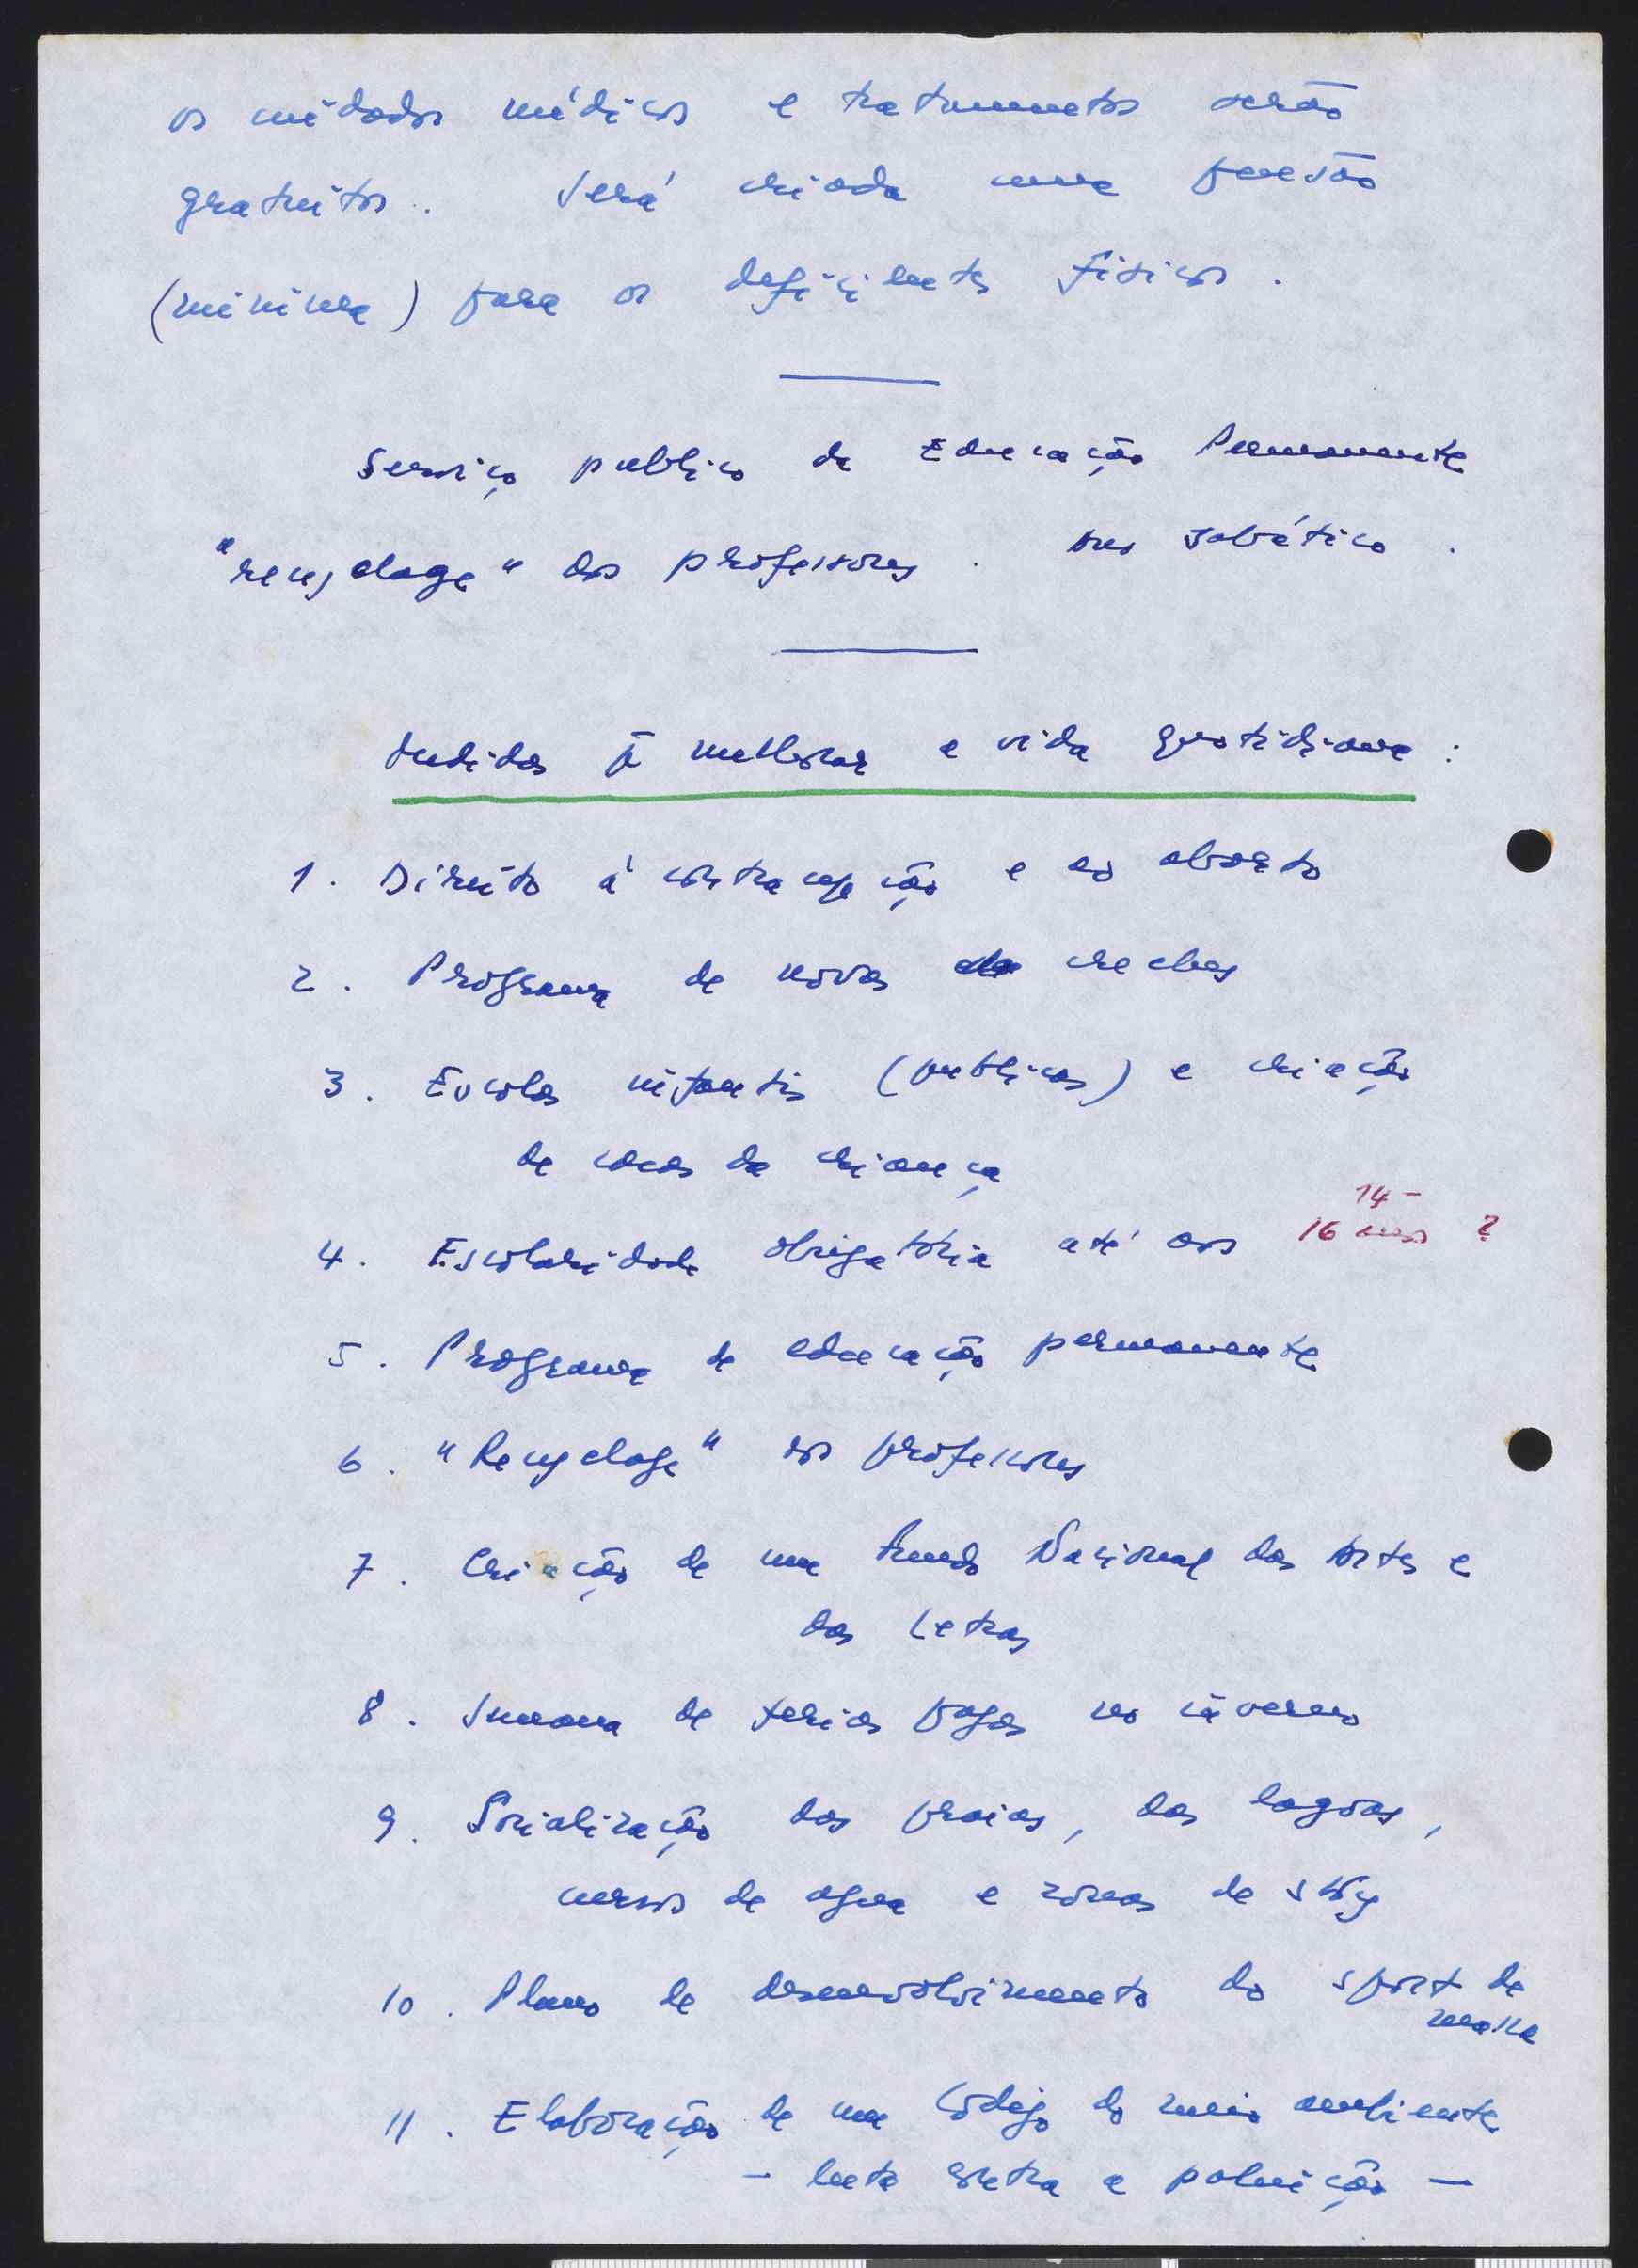 os cuidados médicos e tratamentos serão
gratuitos. Será criada uma pensão
(mínima) para os deficientes físicos.
Serviço publico de Educação Permanente
"recyclage" dos professores. Ano sabático.
Medidas p/ melhorar a vida quotidiana:
1. Direito á contracepção e ao aborto
2. Programa de novas creches
3. Escolas infantis (publicas) e criação
de casas da criança
14 -
4. Escolaridade obrigatória até aos 16 anos ?
5. Programa de educação permanente
6. "Recyclage" dos professores
7. Criação de um Fundo Nacional das Artes e
das Letras
8. Semana de ferias pagas no inverno
9. Socialização das praias, das lagoas,
cursos de agua e zonas de sky
10. Plano de desenvolvimento do sport de
massa
11. Elaboração de um Codigo do meio ambiente
- luta contra a poluição -